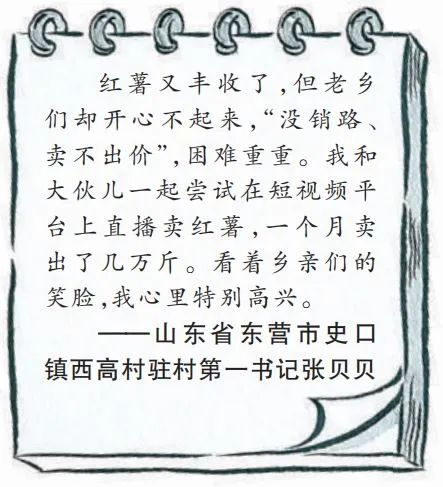 红薯又丰收了,但老乡
们却开心不起来,“没销路、
卖不出价”,困难重重。我和
大伙儿一起尝试在短视频平
台上直播卖红薯,一个月卖
出了几万斤。看着乡亲们的
笑脸,我心里特别高兴。
——山东省东营市史口
镇西高村驻村第一书记张贝贝